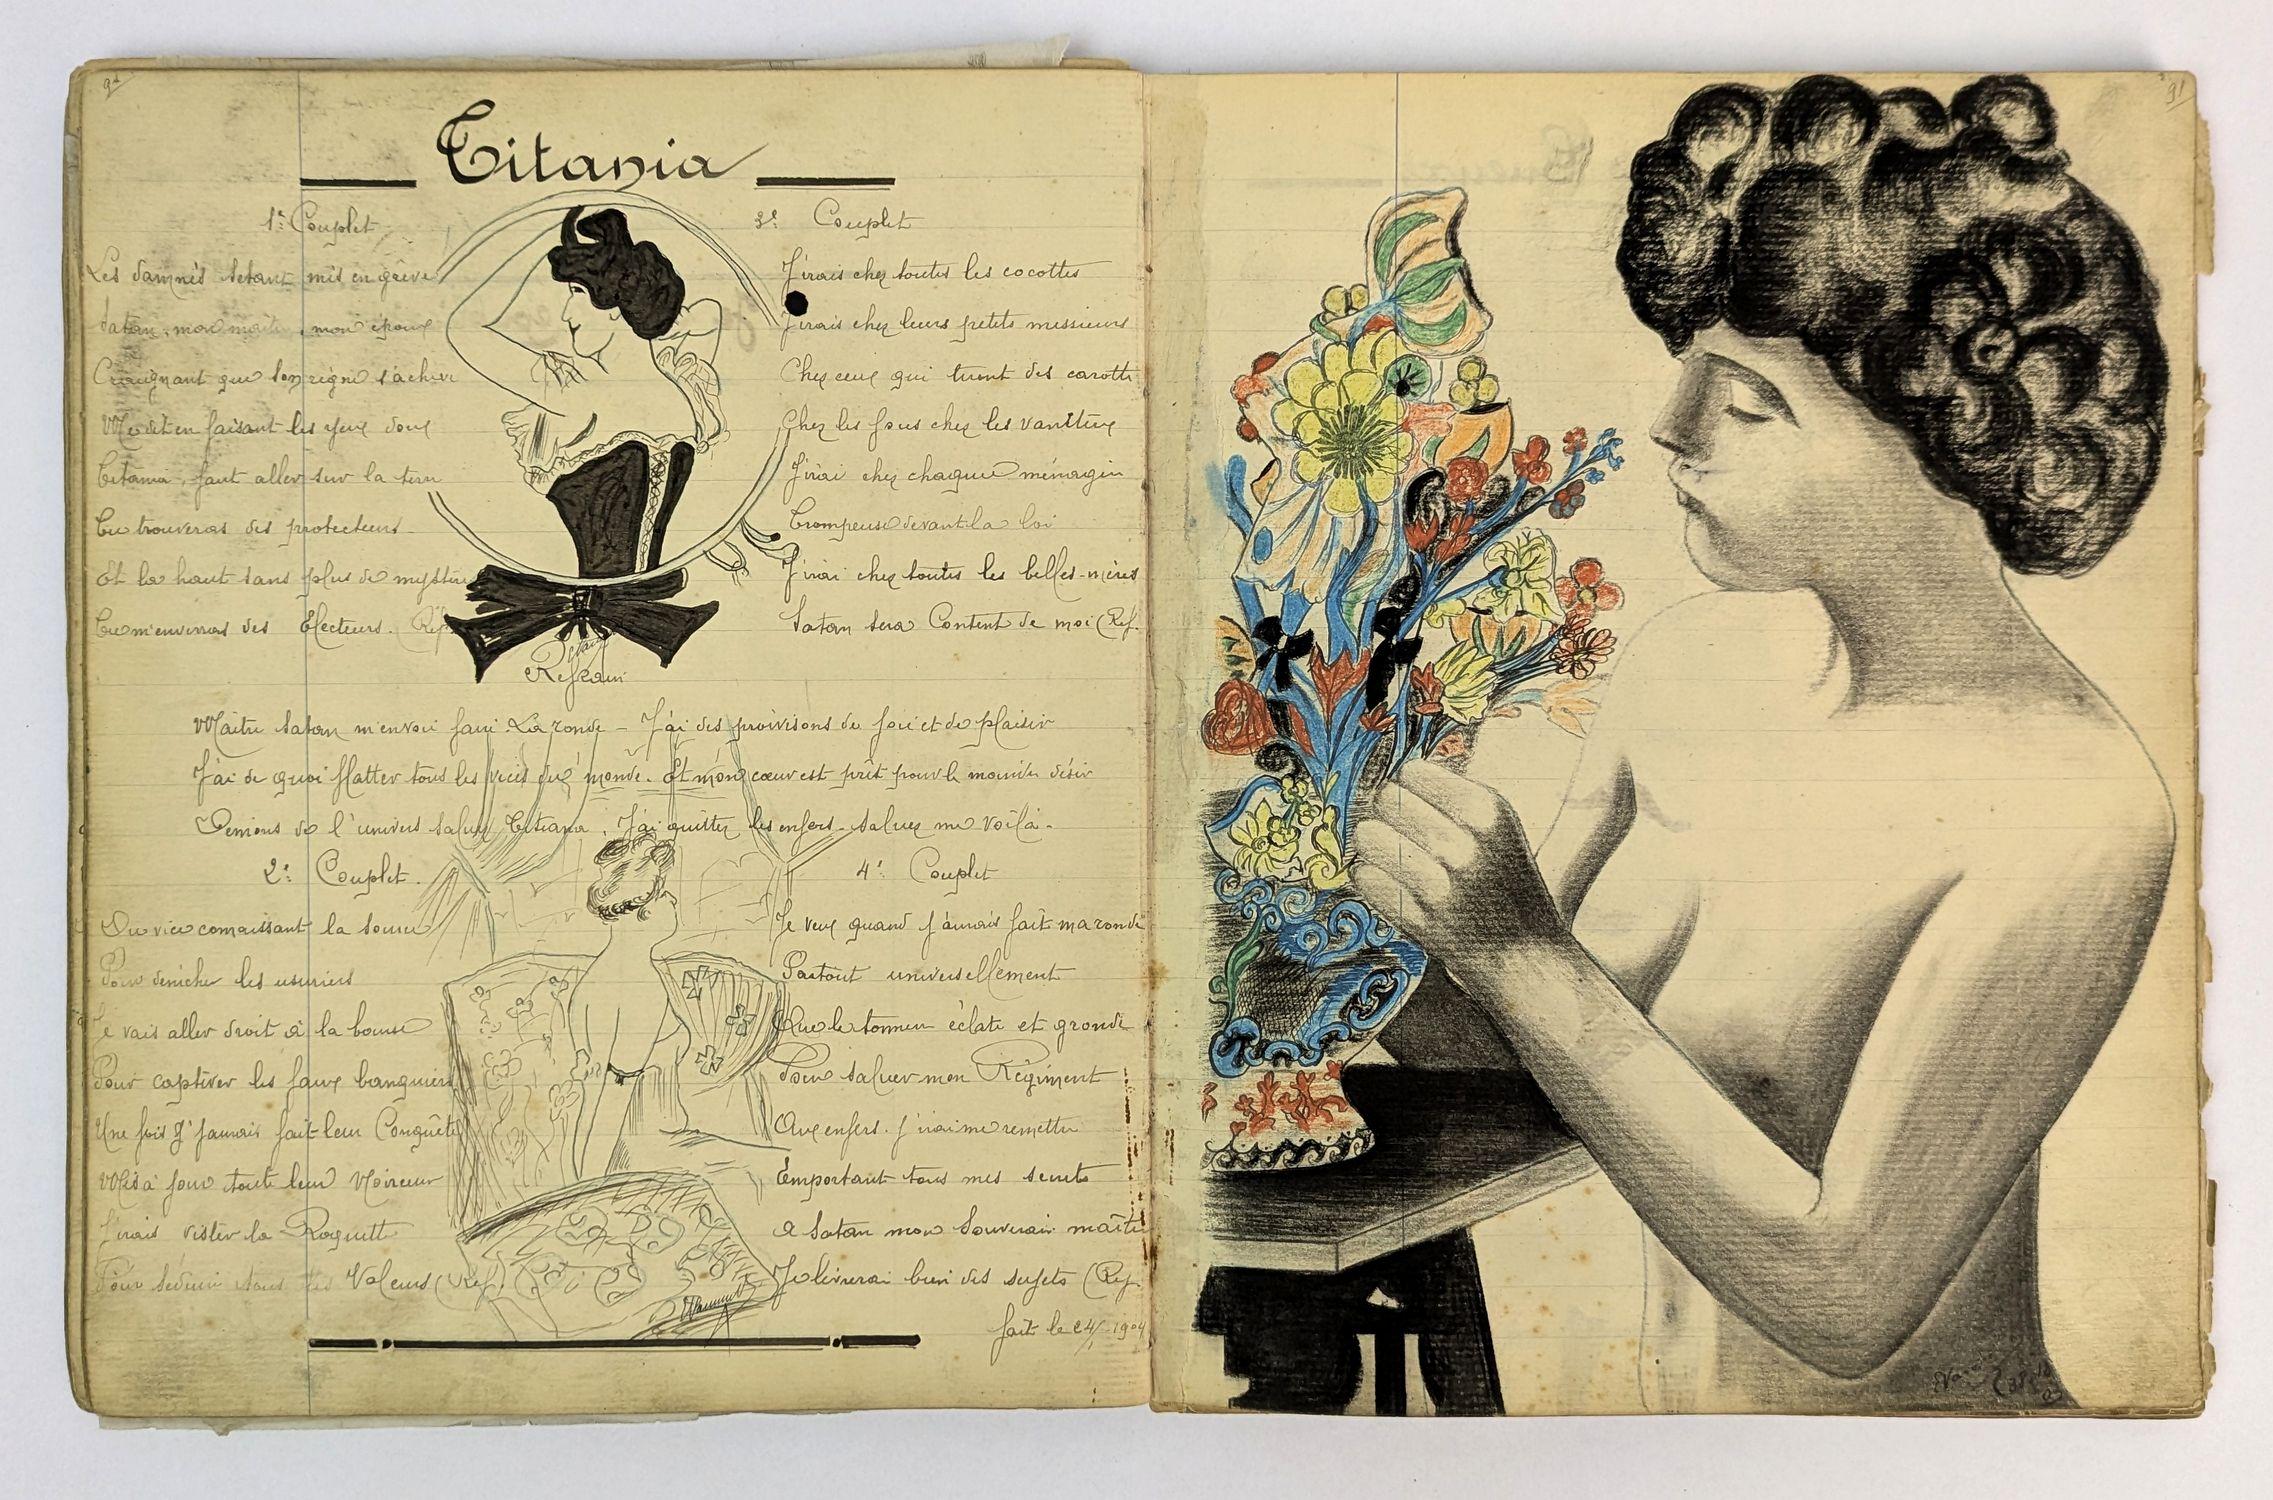 Titania
1er Couplet
Les damnés setant mis en grève
Satan, mon maître, mon époux
Craignant que son règne s'achève
Me dit en faisant les yeux doux
Titania, faut aller sur la terre
Tu trouveras des protecteurs
Et la haut sans plus de mystère
Tu m'enverras des Electeurs. (Ref.
Refrain
Maître Satan m'envoi faire La ronde - J'ai des provisons de joie et de plaisir
J'ai de quoi flatter tous les vices du monde. Et mon cœur est prêt pour le moindre désir
Démons de l'univers saluez Titania. J'ai quitter les enfers - saluez me voilà -
2e Couplet.
Du vice connaissant la source
Pour denicher les usuriers
Je vais aller droit à la bourse
Pour captiver les faux banquiers
Une fois q' j'aurais fait leur Conquête
Mis à jour toute leur Noirceur
J'irais visiter la Roquette
Pour seduire tous les Voleurs (Ref.)
3e Couplet
J'irais chez toutes les cocottes
J'irais chez leurs petits messieurs
Chez ceux qui tirent des carottes
Chez les fous chez les vaniteux
J'irai chez chaque ménagère
Trompeuse devant la loi
J'irai chez toutes les belles-mères
Satan sera Content de moi (Ref.
4e Couplet
Je veux quand j'aurais fait ma ronde
Partout universellement
Que le tonnerre éclate et gronde
Pour saluer mon Régiment
Aux enfers. j'irai me remettre
Emportant tous mes secrets
A Satan mon Souverain maître
Je livrerai bien des sujets (Ref.
fait le 24/ 1904
91